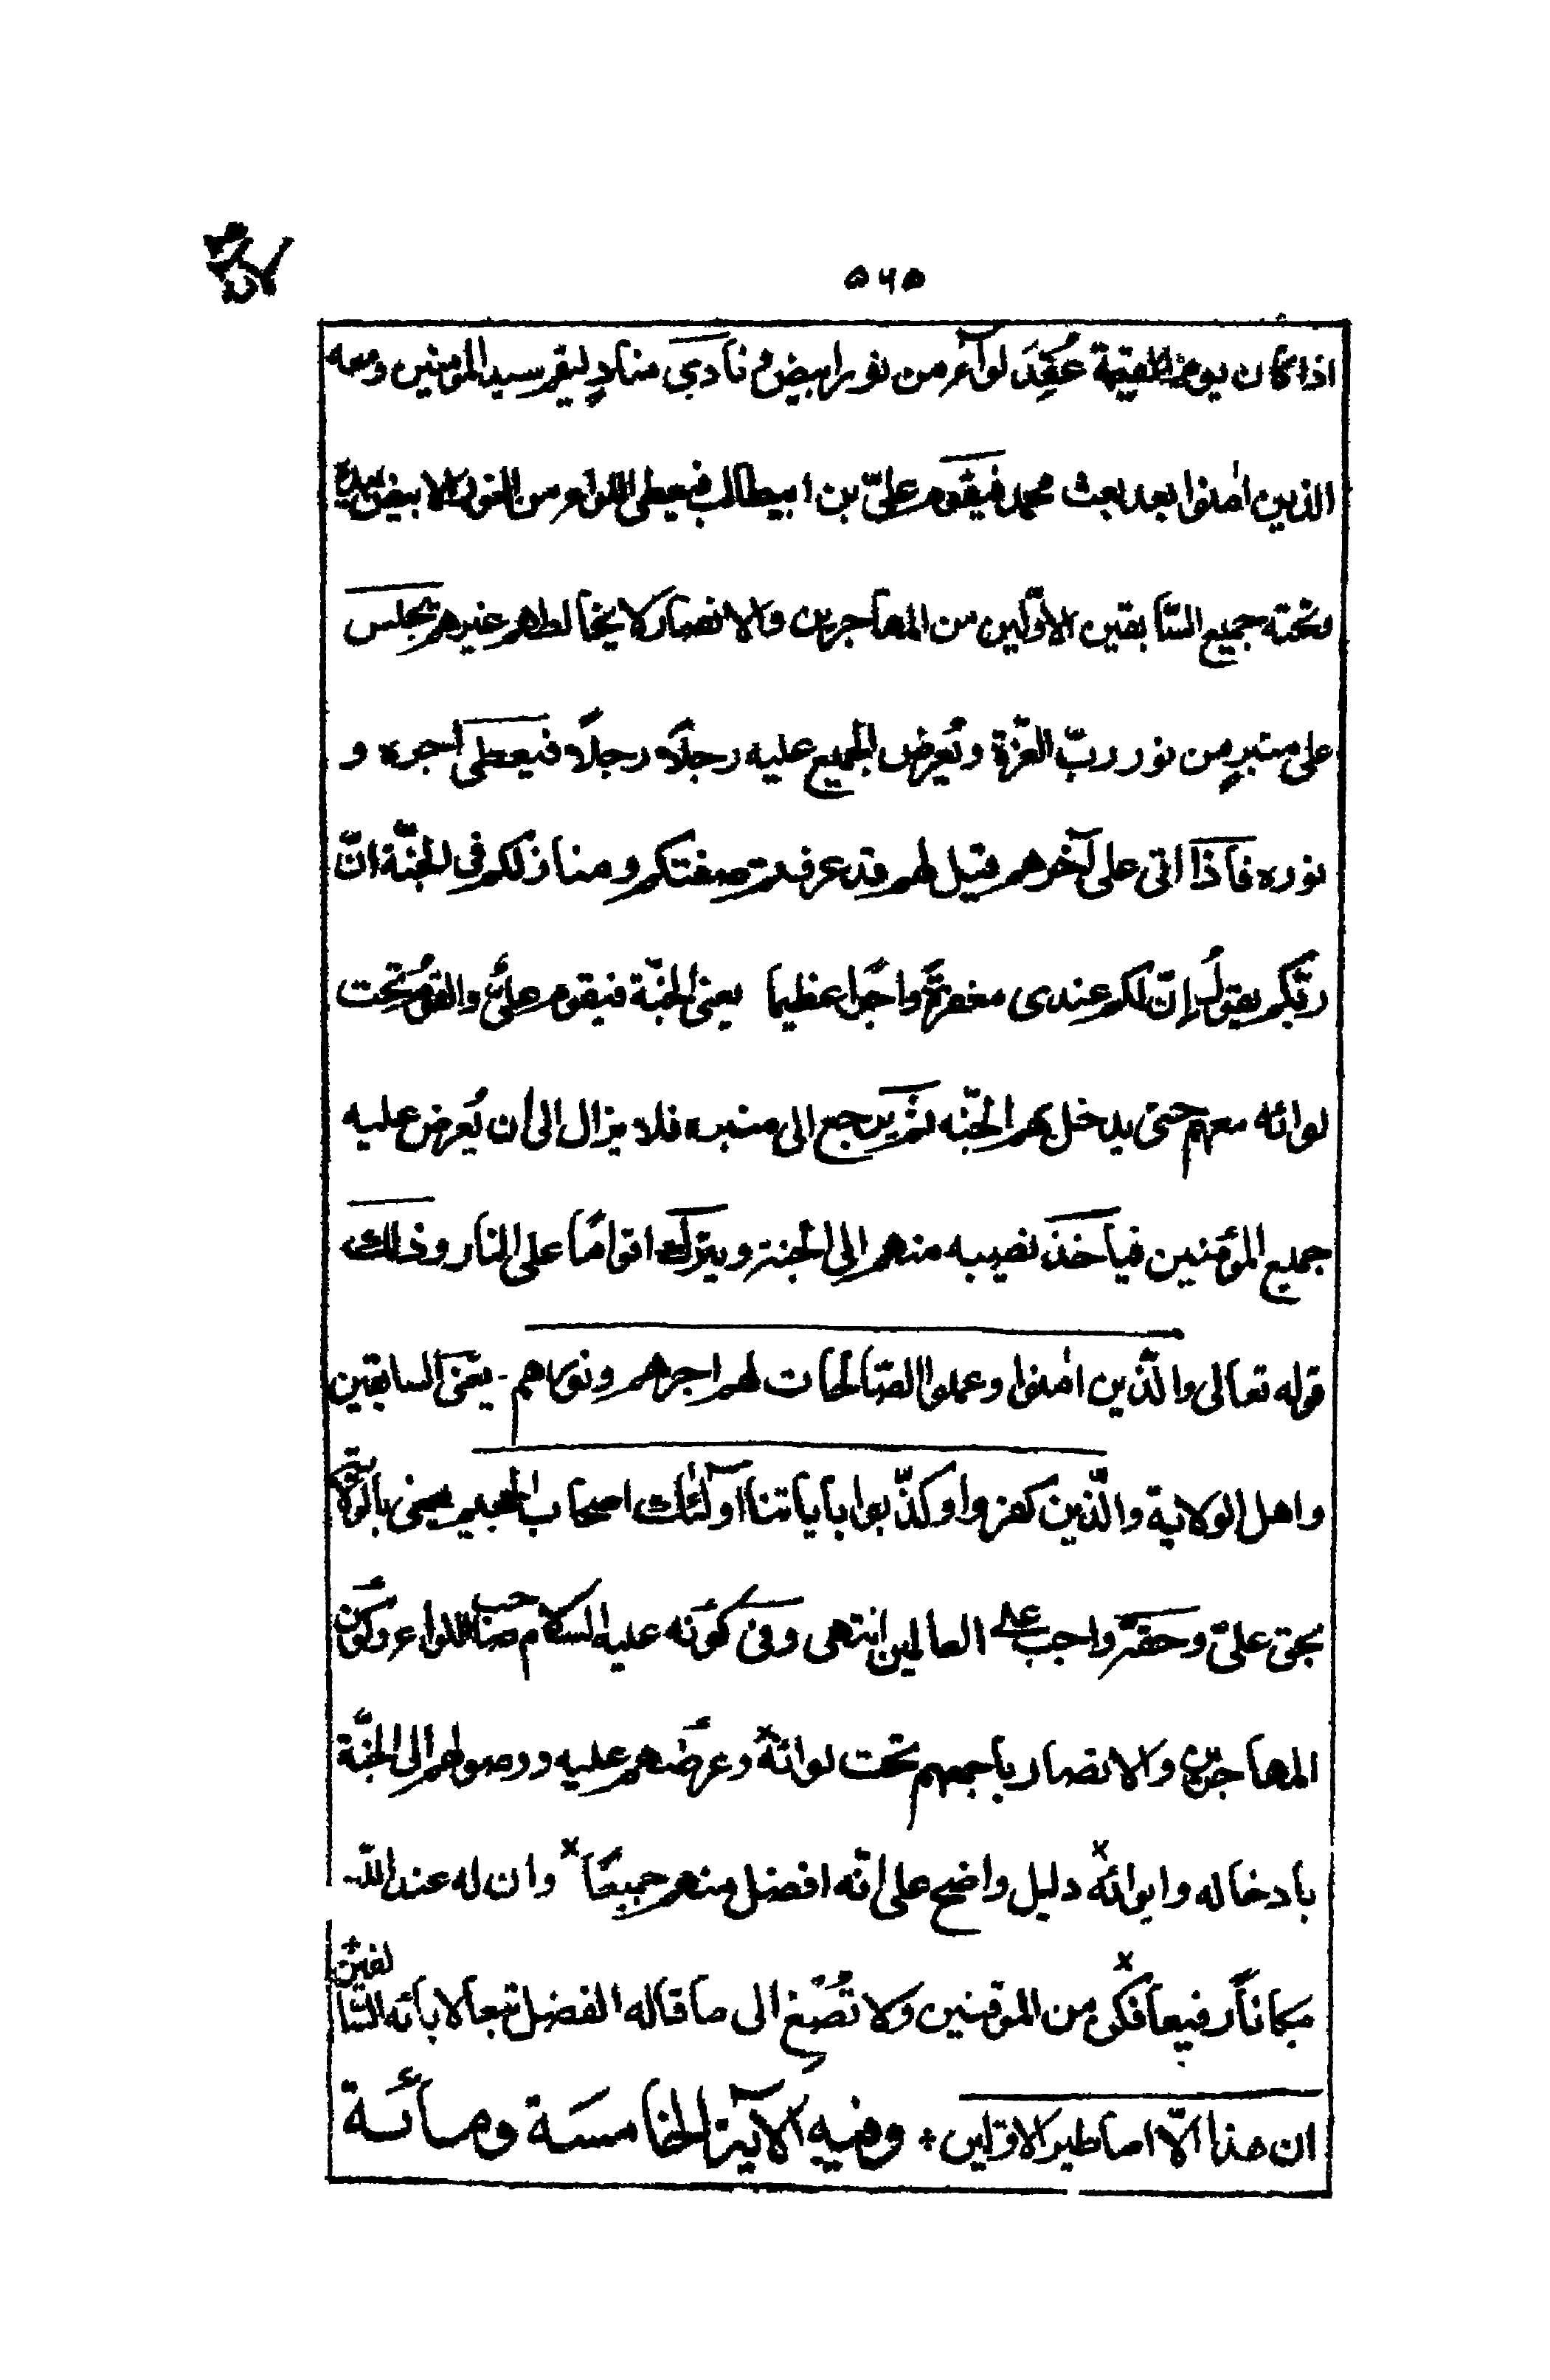 ٥٦٥
اذا كان يوم القيمة عُقِدَ لوآء من نور ابيض و نادى منادٍ ليقم سيد المؤمنين ومعه
الذين اٰمنوا بعد بعث محمد فيقوم علىّ بن ابيطالب فيعطى اللواء من النور الابيض بيده
وتحته جميع السّابقين الاوّلين من المهاجرين والانصار لا يخالطهم غيرهم يجلس
على منبرٍ من نور ربّ العزّة ويُعرض الجميع عليه رجلًا رجلًا فيعطى اجره و
نوره فاذا اتى على آخرهم قيل لهم قد عرفتم صفتكم ومنازلكم فى الجنّة انّ
ربّكم يقول إنّ لكم عندى مغفرةً واجرًا عظيما يعنى الجنّة فيقوم علىٌّ والقوم تحت
لوائه معهم حتى يدخل بهم الجنّه ثم يرجع الى منبره فلا يزال الى أن يُعرض عليه
جميع المؤمنين فياخذ نصيبه منهم الى الجنة ويترك اقوامًا على النار وذلك
قوله تعالى والّذين اٰمنوا وعملوا الصّالحات لهم اجرهم ونورهم - يعنى السابقين
واهل الولاية والّذين كفروا وكذّبوا باياتنا اولٰئك اصحاب الجحيم يعنى بالولاية
بحق علىّ وحقّه واجب على العالمين انتهى وفى كونه عليه السلام صاحب اللواء وكون
المهاجرين والانصار باجمعهم تحت لوائه وعرضهم عليه ووصولهم الى الجنّة
بادخاله وايوائه دليل واضح على انّه افضل منهم جميعًا وان له عند الله
مكاناً رفيعا فكن من الموقنين ولا تُصْغِ الى ما قاله الفضل تبعا لابائه السّالفين
ان هذا الّا اساطير الاوّلين + وفيه الآية الخامسة ومائة